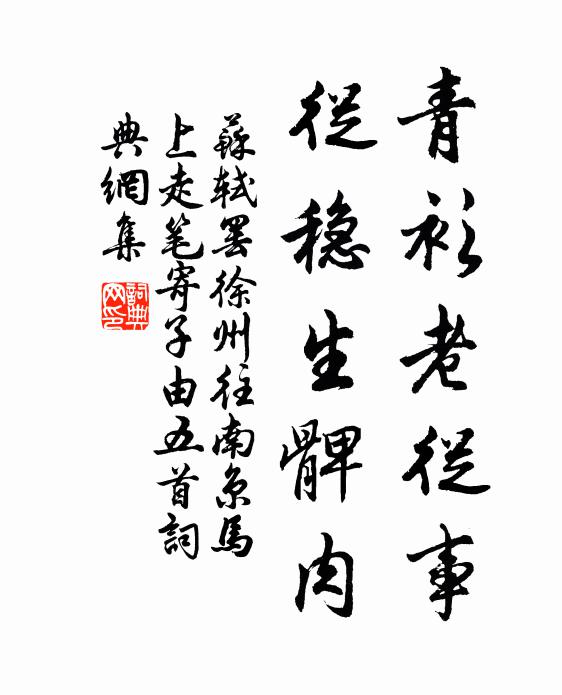 青衫老從事
從穩生髀肉
蘇軾罷徐州往南京馬
上走笔寄子由五首詞
典網集
詞典
网印